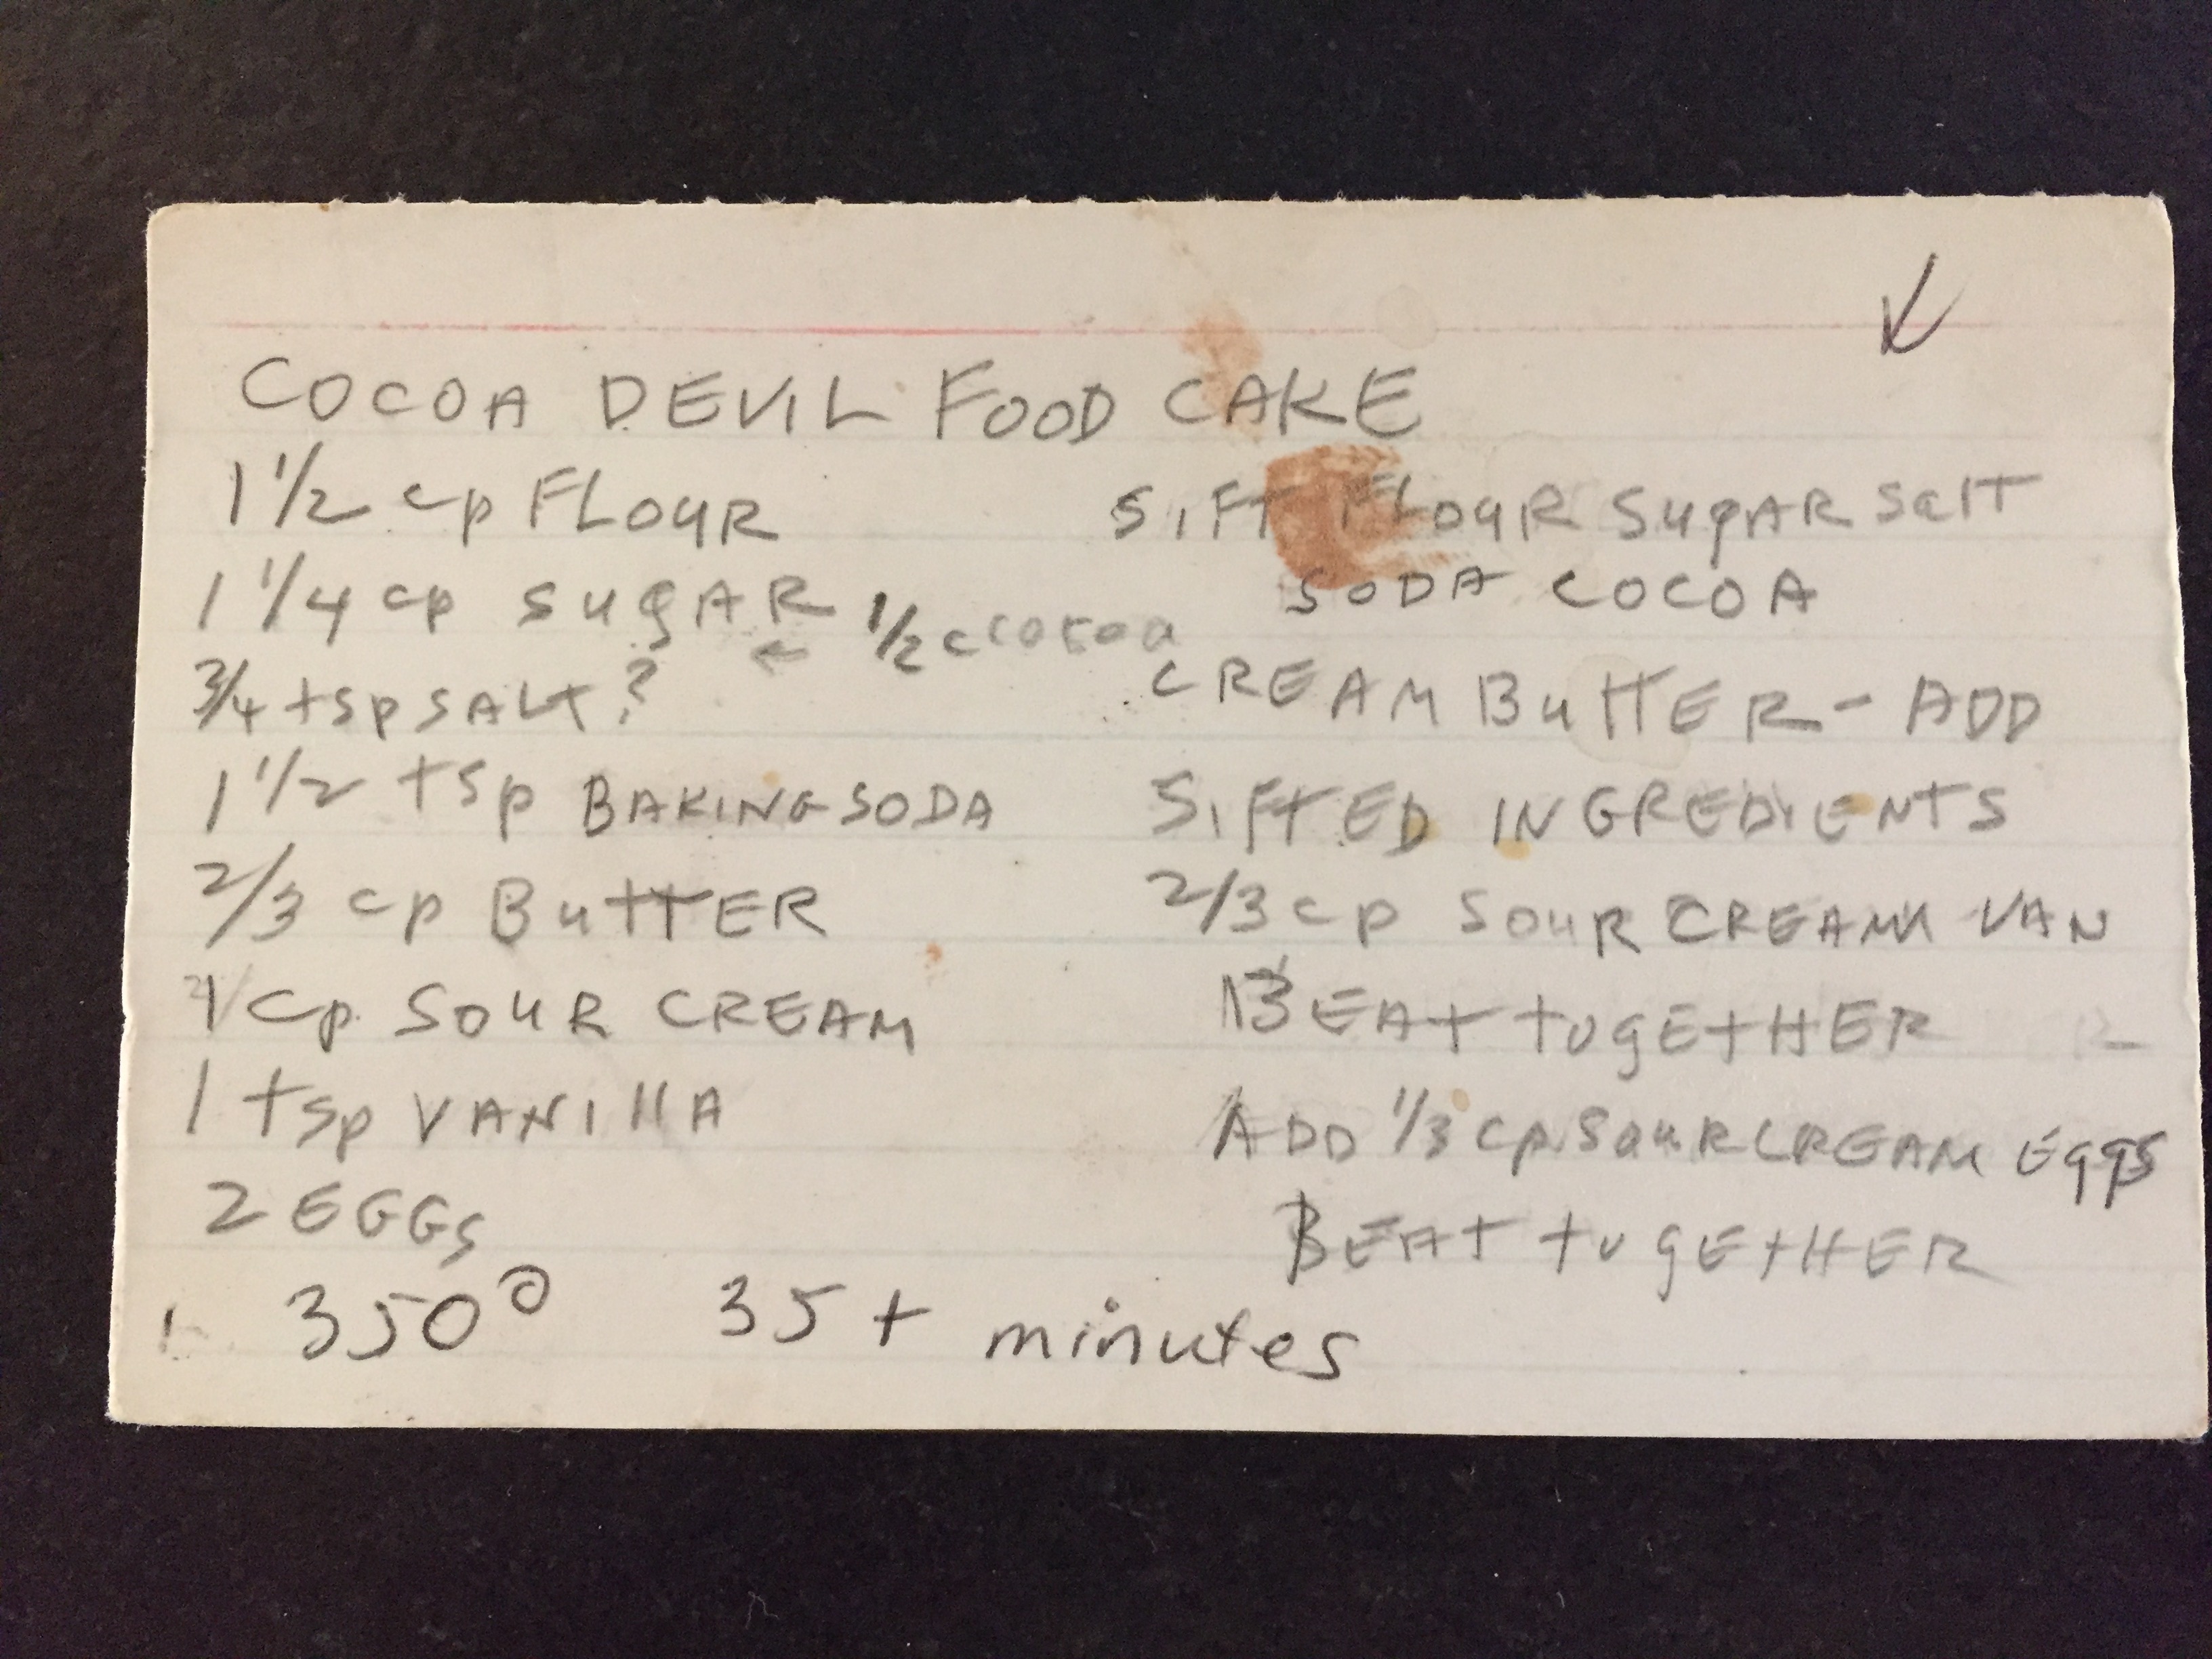 COCOA DEVIL FOOD CAKE
1 1/2 cp FLOUR
1 1/4 cp SUGAR ← 1/2 c cocoa
3/4 tsp SALT?
1 1/2 tsp BAKING SODA
2/3 cp BUTTER
1 cp SOUR CREAM
1 tsp VANILLA
2 EGGS
350° 35+ minutes
SIFT FLOUR SUGAR SALT
SODA COCOA
CREAM BUTTER - ADD
SIFTED INGREDIENTS
2/3 cp SOUR CREAM VAN
BEAT TOGETHER
ADD 1/3 cp SOUR CREAM EGGS
BEAT TOGETHER